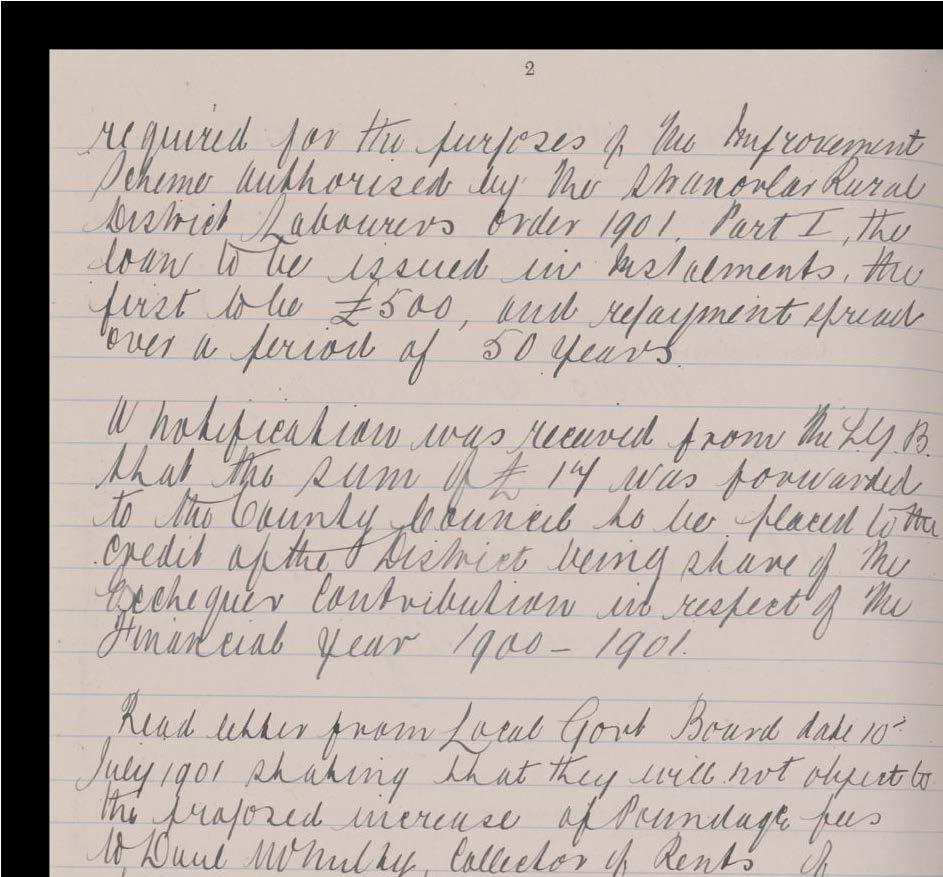 2
required for the purposes of the Improvement
Scheme authorised by the Stranorlar Rural
District Labourers Order 1901. Part I, the
loan to be issued in instalments, the
first to be £500, and repayment spread
over a period of 50 years.
A notification was received from the L.G.B.
that the sum of £ 17 was forwarded
to the County Council to be placed to the
credit of the District being share of the
Exchequer Contribution in respect of the
Financial Year 1900 - 1901.
Read letter from Local Govt Board date 10
July 1901 stating that they will not object to
the proposed increase of Poundage fees
to McNulty, Collector of Rents of